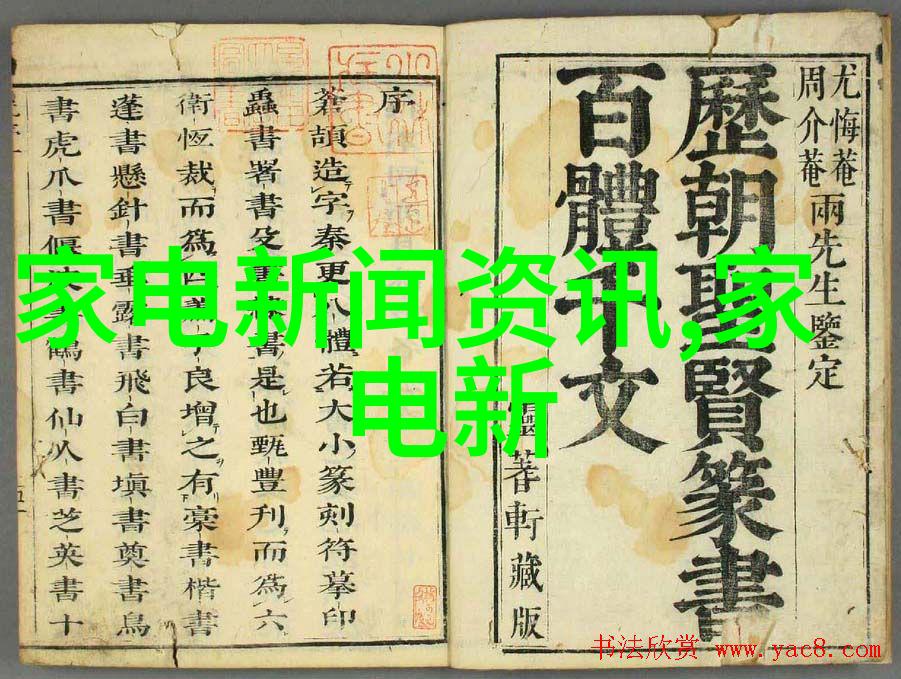 尤悔菴
周介菴
兩先生鑒定
歷朝聖賢篆書
百體千文
蓍軒藏版
序
蒼頡造字秦更八體若大小篆刻符摹印
蟲書署書殳書隸書是也甄豐刋而爲六
衛恆裁而爲四
良增之有豪書楷書
蓬書懸針書垂露書飛白書塡書奠書鳥
書虎爪書偃
鶴書仙人書芝英書十
家电新闻资讯,家
电新
书法欣赏 www.yac8.com